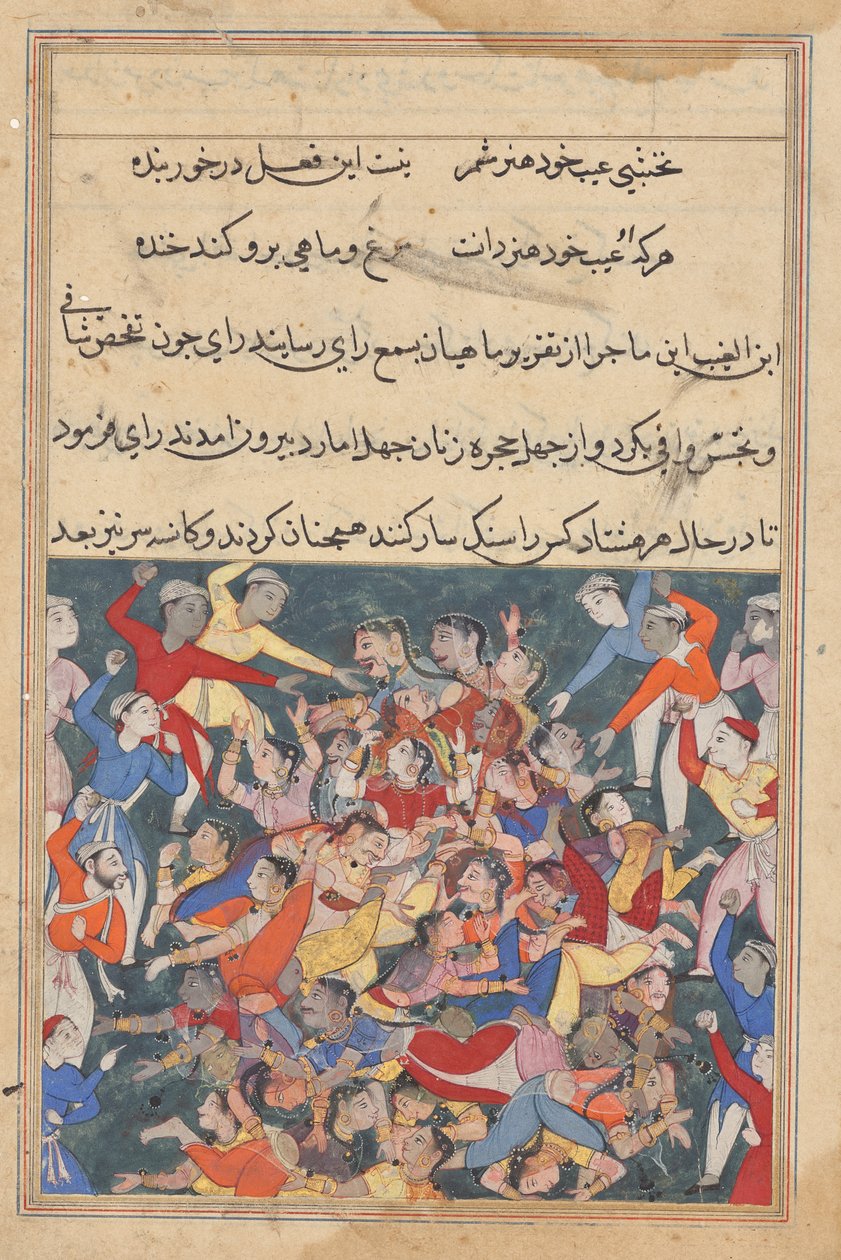 نخشبی عیب خود هنر مشمر نیست این فعل در خور بنده
هر که او عیب خود هنر دانست مرغ و ماهی برو کند خنده
ابن الغیب این ماجرا از تقریر ماهیان بسمع رای رسانید رای چون تفحص شافی
و تجسس وافی بکرد و از چهل حجره زنان چهل امارد بیرون امدند رای فرمود
تا در حال هر هشتاد کس را سنک سار کنند همچنان کردند و کانسه سر نیز بعد